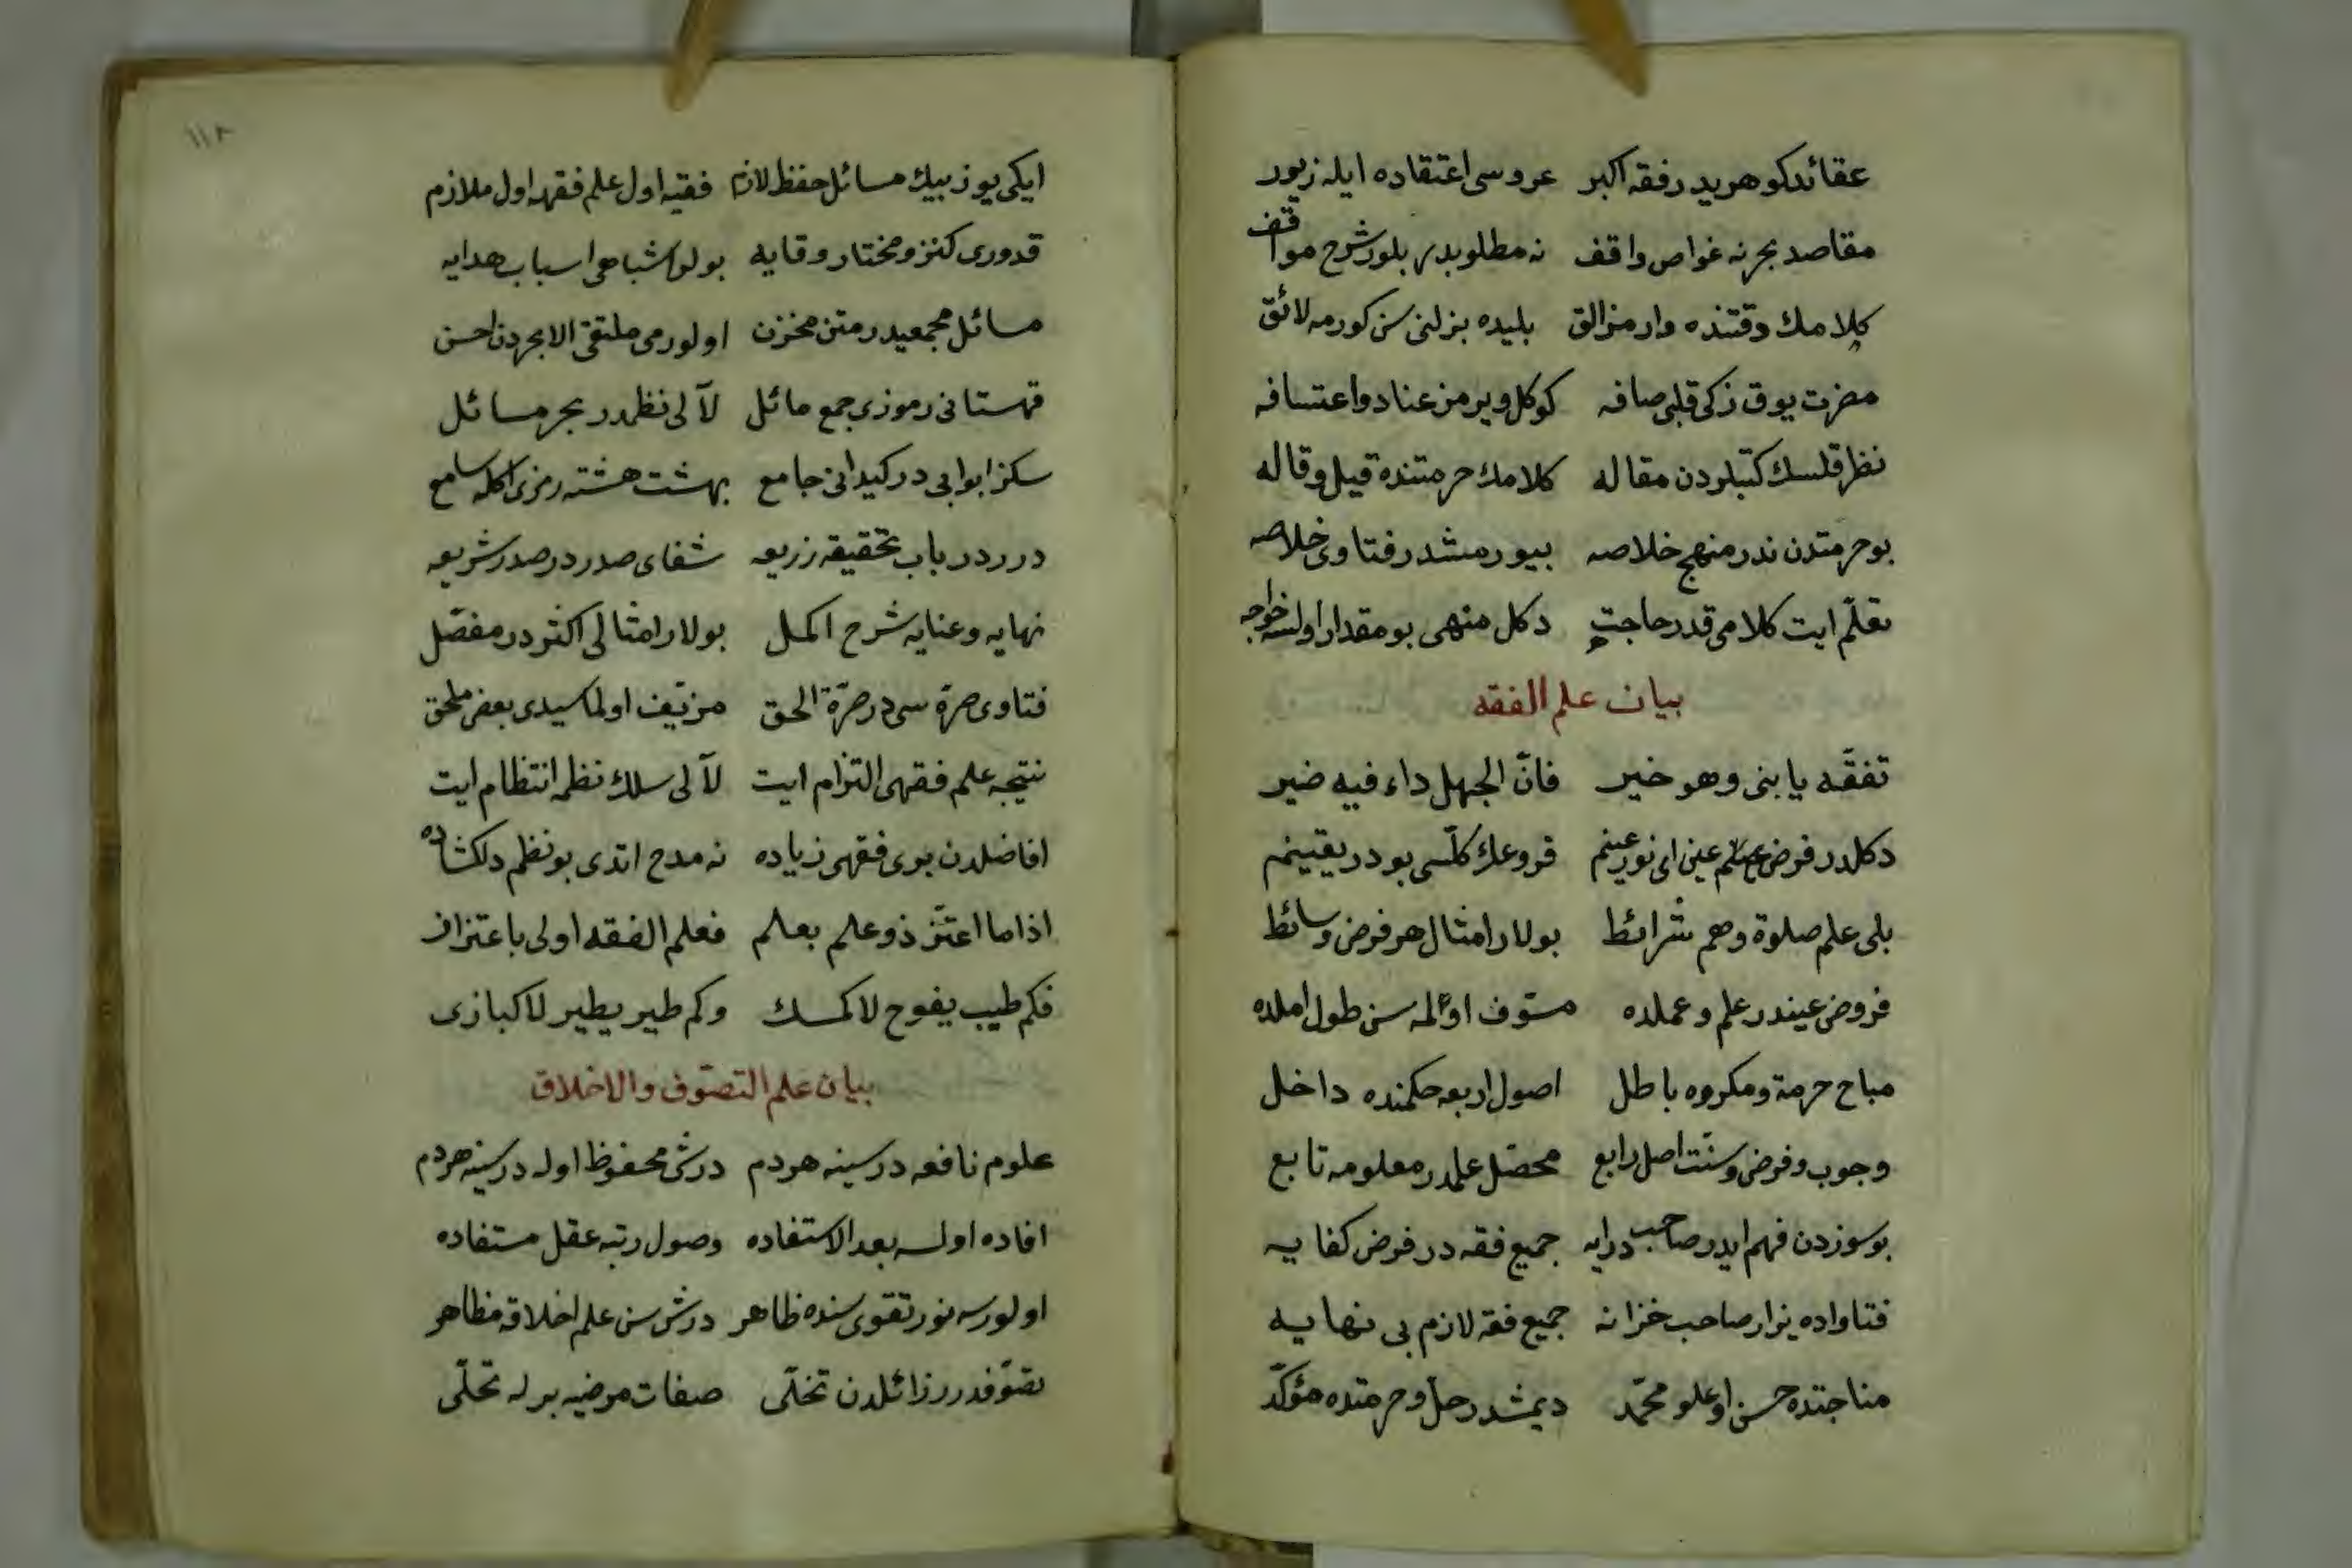 عقائد كوهريدر فقه اكبر عروسی اعتقاده ايله زيور
مقاصد بحرنه غواص واقف نه مطلوبدر بلور شرح مواقف
كلامك دقتنده وار مزالق بليده بزلنی سن كورمه لائق
مضرت يوق زكی قلبی صافه كوكل ويرمز عناد واعتسافه
نظر قلسك كتبلردن مقاله كلامك حرمتنده قيل وقاله
بو حرمتدن ندر منهج خلاصه بيورمشدر فتاوی خلاصه
تعلّم ايت كلامی قدر حاجت دكل منهی بو مقدار اولسه خواجه
بيان علم الفقه
تفقّه يا بنی وهو خير فانّ الجهل داء فيه ضير
دكلدر فرض علم عين ای نور عينم فروعك كلّسی بودر يقينم
بلی علم صلوة وهم شرائط بولار امثال هر فرض وسائط
فروض عيندر علم وعملده مسوّف اولمه سن طول املده
مباح حرمة ومكروه باطل اصول اربعه حكمنده داخل
وجوب وفرض وسنّت اصل رابع محصّل علمدر معلومه تابع
بو سوزدن فهم ايدر صاحب درايه جميع فقه در فرض كفايه
فتاواده يزار صاحب خزانه جميع فقه لازم بی نهايه
مناجتده حسن اوغلو محمّد ديمشدر حلّ وحرمتده مؤكّد
١١٨
ايكی يوز بيك مسائل حفظ لازم فقيه اول علم فقهه اول ملازم
قدوری كنز ومختار وقايه بولور اشباهی اسباب هدايه
مسائل مجمعيدر متن مخزن اولورمی ملتقی الابحردن احسن
قهستانی رموزی جمع مائل لآلی نظمدر بحر مسائل
سكز ابوابی در كيدانی جامع بهشت هشته رمزی اكله سامع
درر در باب تحقيقه زريعه شفای صدر در صدر شريعه
نهايه وعنايه شرح اكمل بولار امثالی اكثر در مفصّل
فتاوی صرّه سی در صرّة الحق مزيّف اولماسيدی بعض ملحق
نتيجه علم فقهی التزام ايت لآلی سلك نظمه انتظام ايت
افاضلدن بری فقهی زياده نه مدح اتدی بو نظم دلكشاده
اذا ما اعتزّ ذو علم بعلم فعلم الفقه اولی باعتزاز
فكم طيب يفوح لا كمسك وكم طير يطير لا كبازی
بيان علم التصوّف والاخلاق
علوم نافعه در سينه هردم درش محفوظ اوله در سينه هردم
افاده اولسه بعد الاستفاده وصول رتبه عقل مستفاده
اولورسه نور تقوی سنده ظاهر درش سن علم اخلاقه مظاهر
تصوّفدر رزائلدن تخلّی صفات مرضيه برله تحلّی